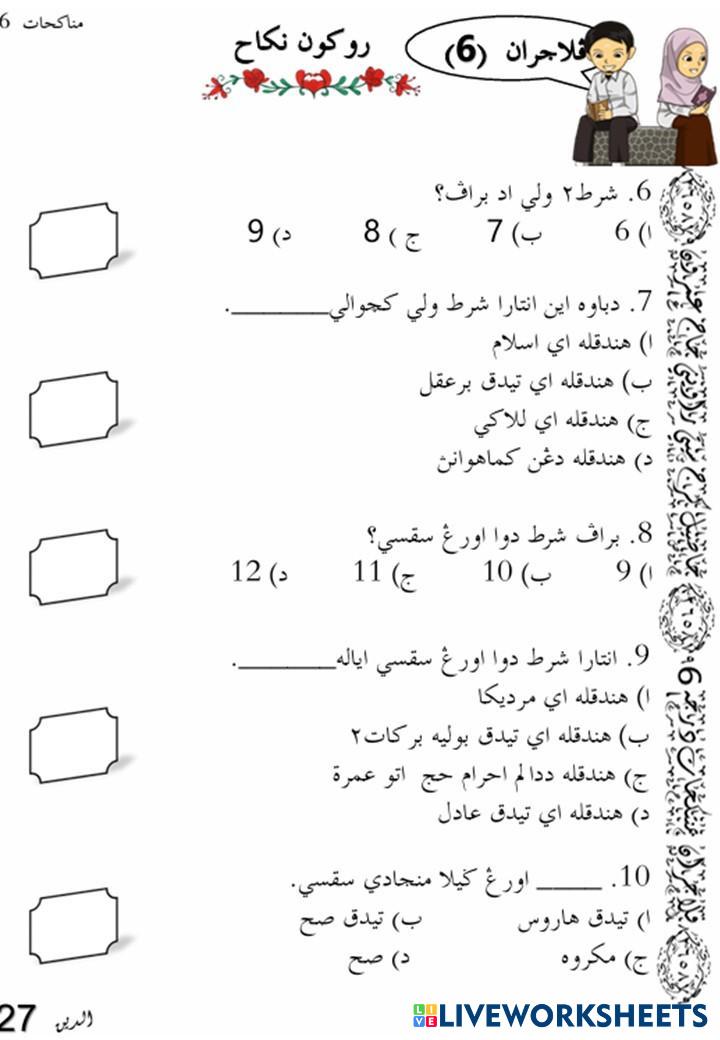 مناكحات 6
ڤلاجران (6)
روكون نكاح
6. شرط٢ ولي اد براڤ؟
ا) 6 ب) 7 ج ) 8 د) 9
7. دباوه اين انتارا شرط ولي كچوالي_________.
ا) هندقله اي اسلام
ب) هندقله اي تيدق برعقل
ج) هندقله اي للاكي
د) هندقله دڠن كماهوانڽ
8. براڤ شرط دوا اورڠ سقسي؟
ا) 9 ب) 10 ج) 11 د) 12
9. انتارا شرط دوا اورڠ سقسي اياله_________.
ا) هندقله اي مرديكا
ب) هندقله اي تيدق بوليه بركات٢
ج) هندقله ددالم احرام حج اتو عمرة
د) هندقله اي تيدق عادل
10. ______ اورڠ ݢيلا منجادي سقسي.
ا) تيدق هاروس ب) تيدق صح
ج) مكروه د) صح
الدين 27
LIVE LIVEWORKSHEETS